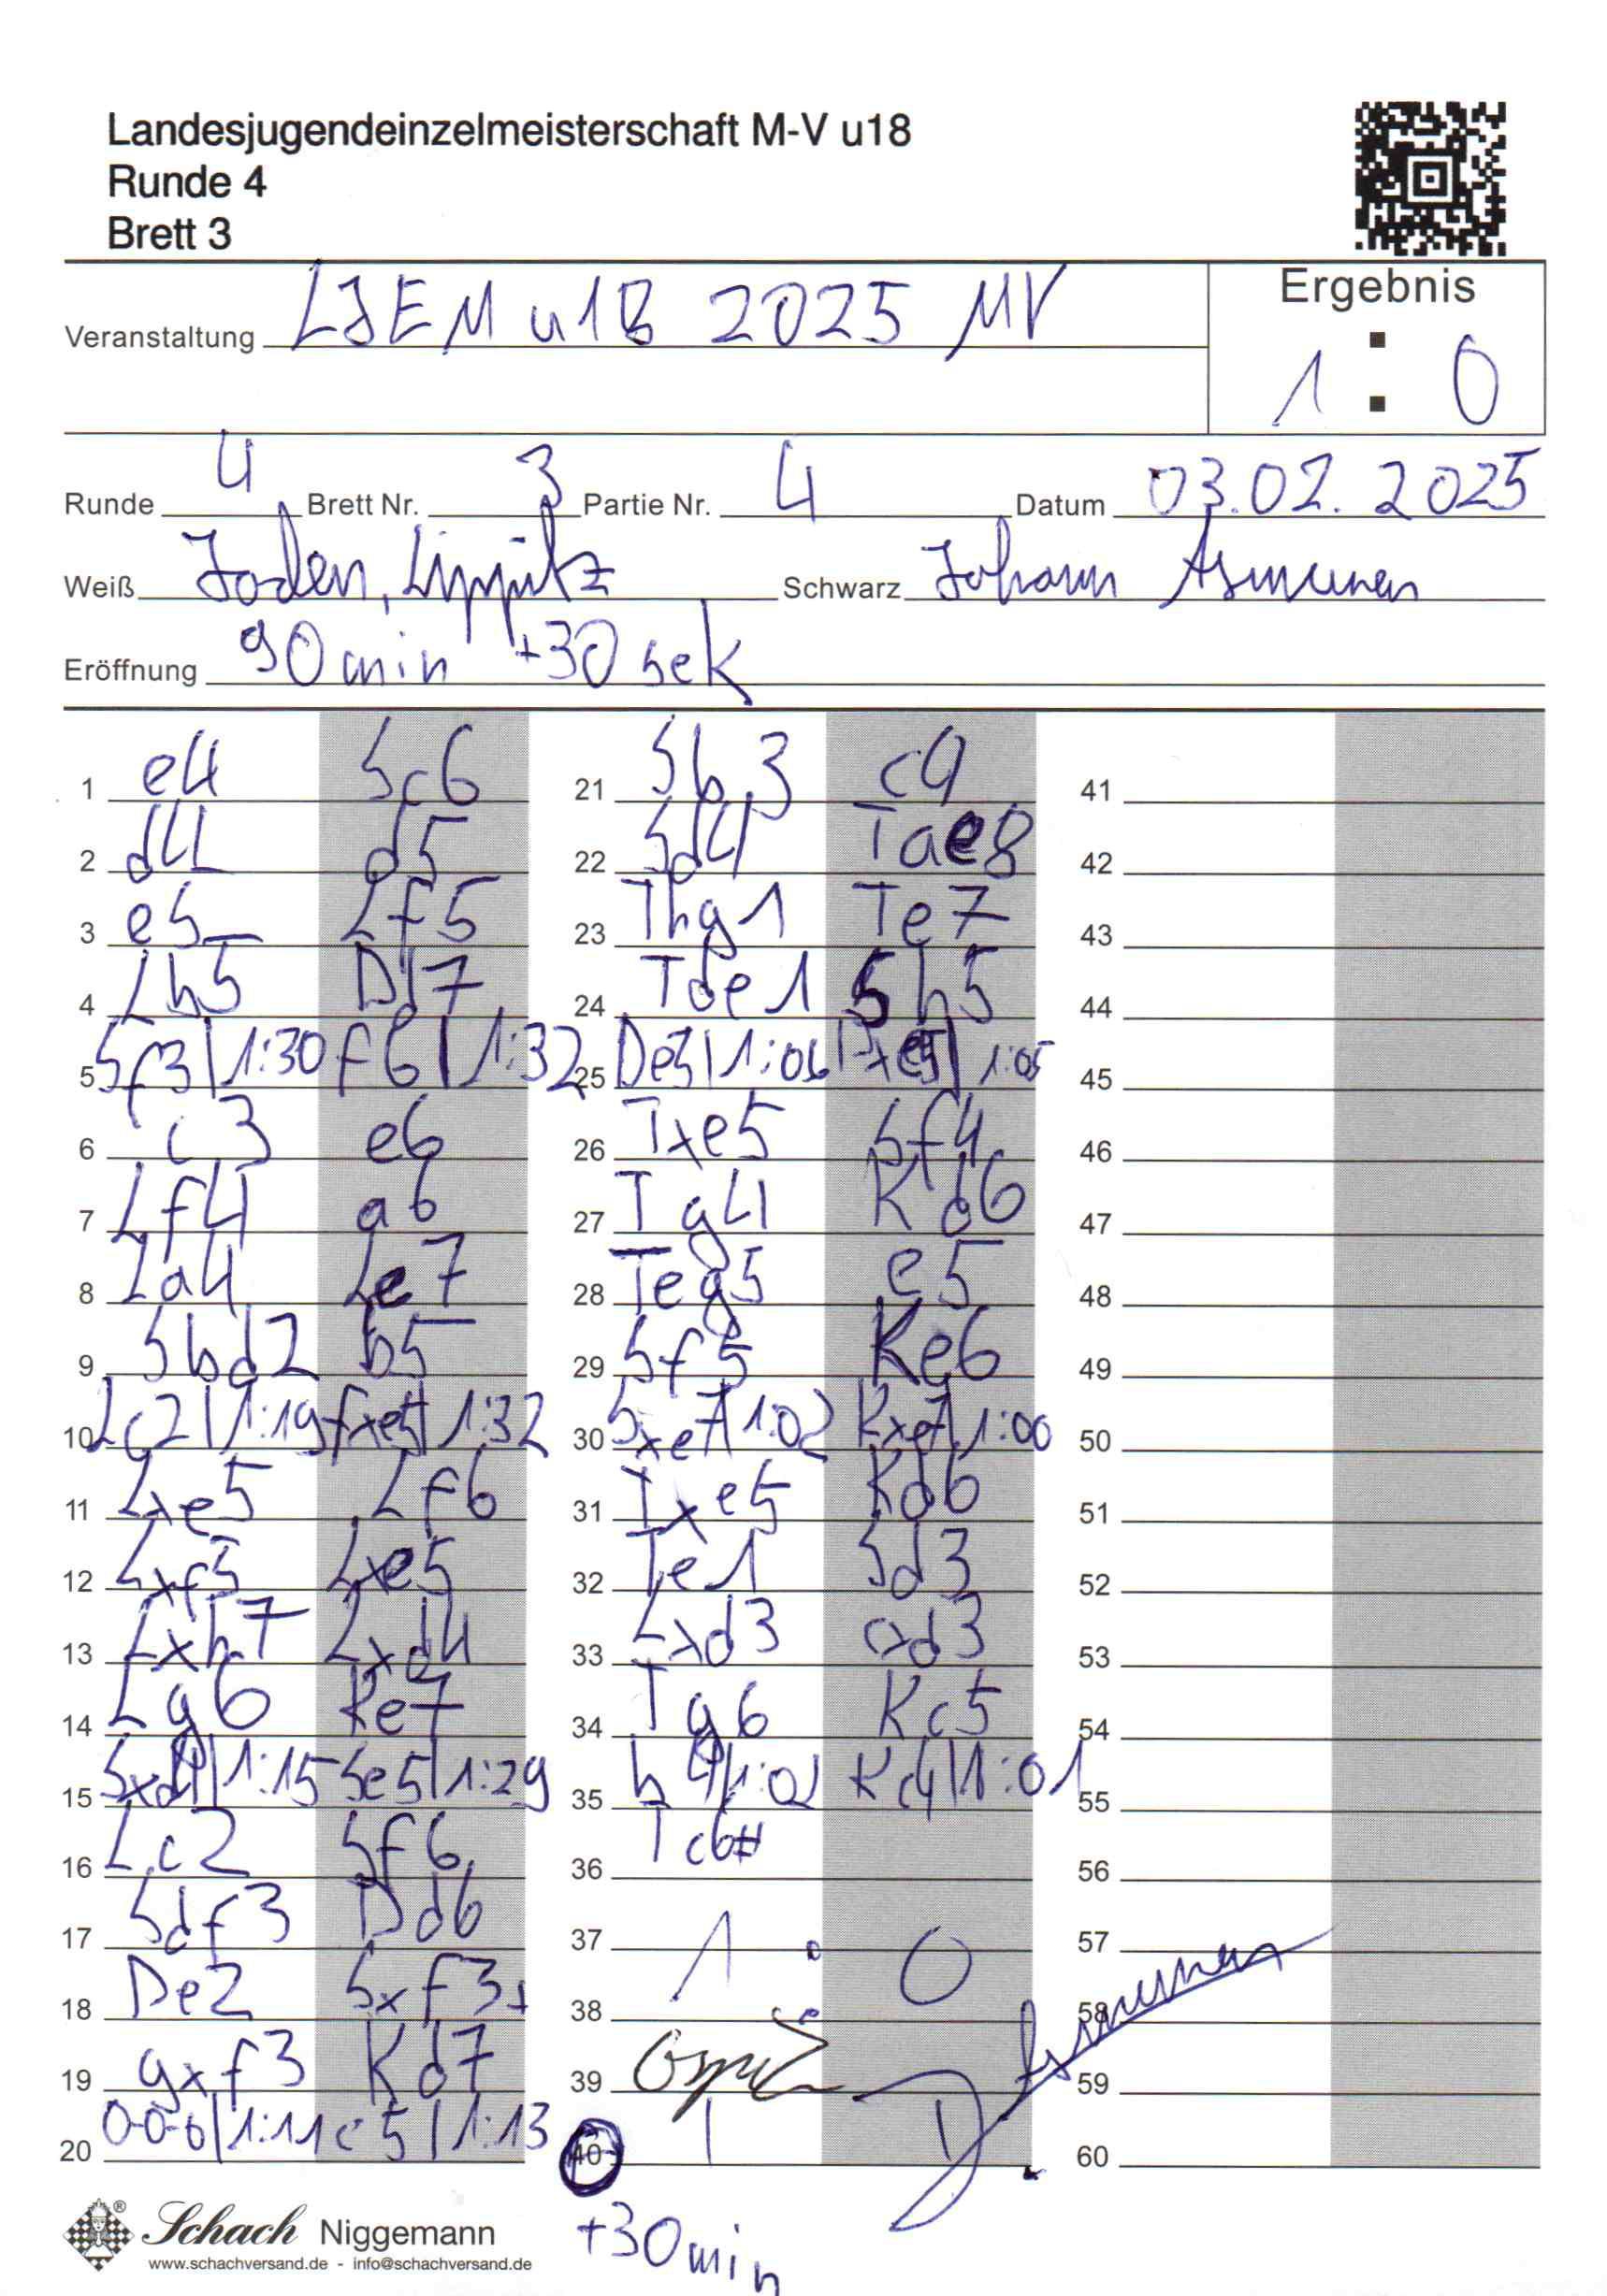 Landesjugendeinzelmeisterschaft M-V u18
Runde 4
Brett 3
Ergebnis
Veranstaltung LJEM u18 2025 MV
1 : 0
Runde 4 Brett Nr. 3 Partie Nr. 4 Datum 03.02.2025
Weiß Lippitz Schwarz Johann
Eröffnung 90min +30sek
1 e4 Sc6 21 Sb3 c4 41
2 d4 d5 22 Sd4 Tae8 42
3 e5 Lf5 23 Thg1 Te7 43
4 Lb5 Dd7 24 Tde1 Sh5 44
5 Sf3|1:30 f6|1:32 25 De5|1:06 Dxe5|1:05 45
6 c3 e6 26 Txe5 Sf4 46
7 Lf4 a6 27 Tg4 Kd6 47
8 La4 Le7 28 Teg5 e5 48
9 Sbd2 b5 29 Sf5 Ke6 49
10 Lc2|1:19 fxe5|1:32 30 Sxe7|1:02 Kxe7|1:00 50
11 Lxe5 Lf6 31 Txe5 Kd6 51
12 Lxf5 Lxe5 32 Te1 Sd3 52
13 Lxh7 Lxd4 33 Lxd3 cxd3 53
14 Lg6 Ke7 34 Tg6 Kc5 54
15 Sxd4|1:15 Se5|1:29 35 h4|1:02 Kc4|1:01 55
16 Lc2 Sf6 36 Tc6# 56
17 Sdf3 Dd6 37 1 : 0 57
18 De2 Sxf3+ 38 58
19 gxf3 Kd7 39 59
20 0-0-0|1:11 c5|1:13 40 60
Schach Niggemann
www.schachversand.de - info@schachversand.de
+30min